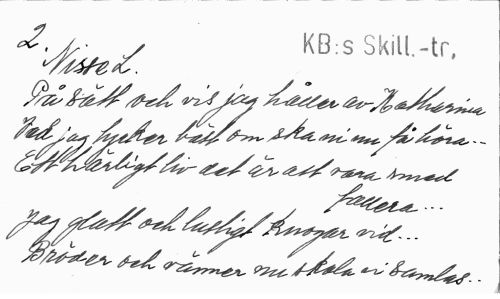 2.
KB:s Skill.-tr.
Nisse L.
På sätt och vis jag håller av Katharina
Vad jag tycker bäst om ska ni nu få höra..
Ett härligt liv det är att vara med
fallera...
Jag glatt och lustigt knogar vid...
Bröder och vänner nu skola vi samlas..